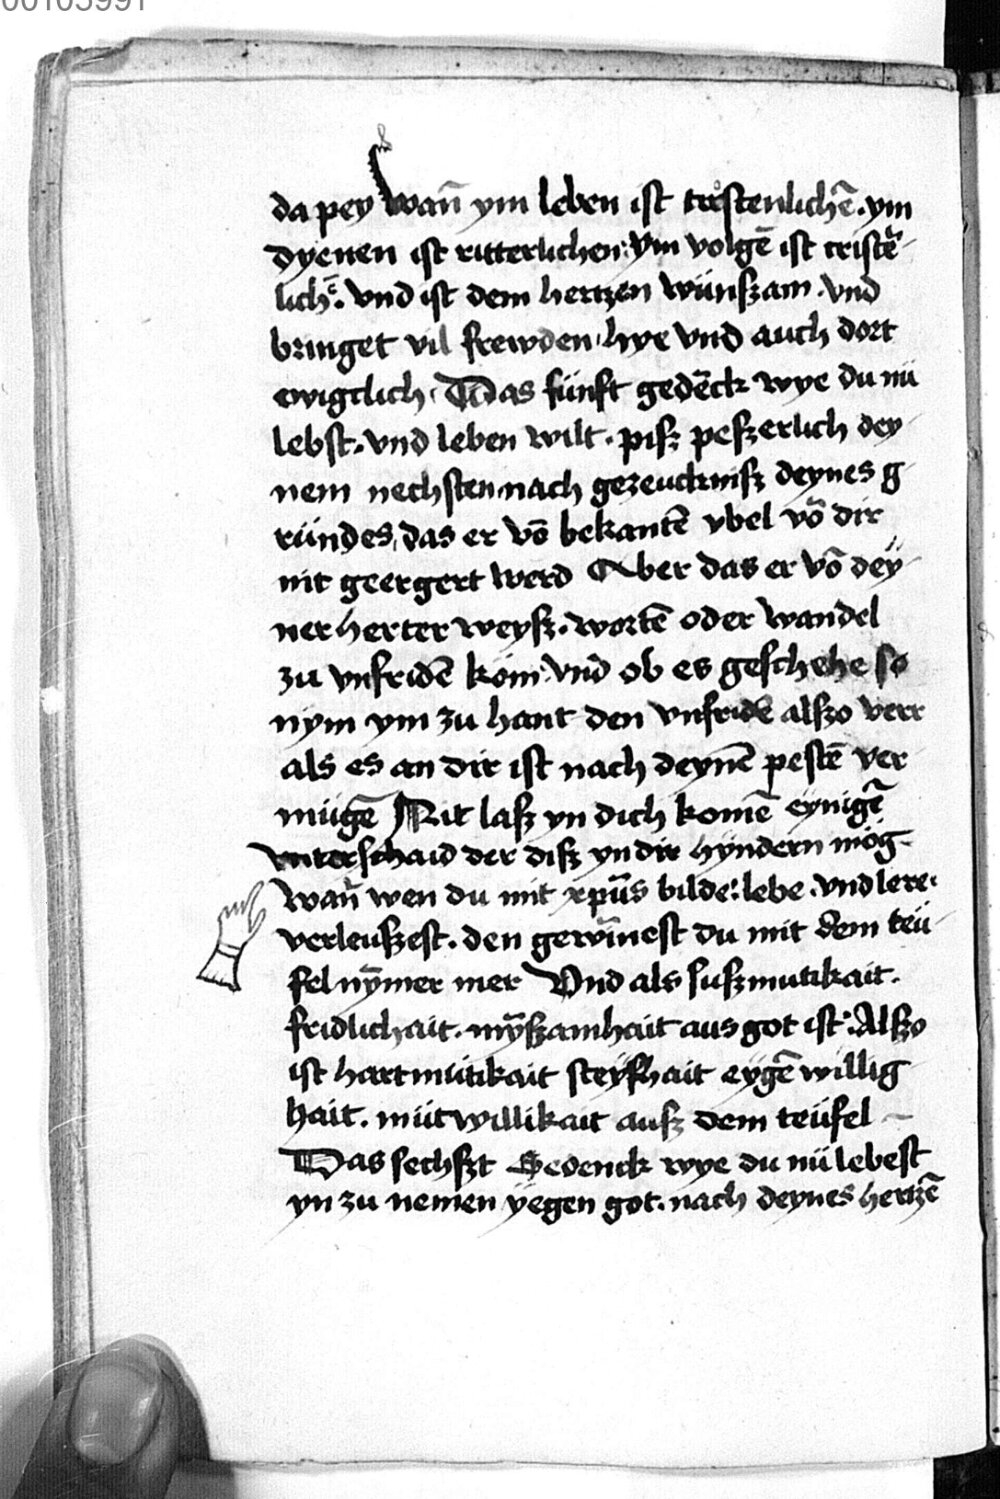 00103991
da pey Wan̄ ym leben ist trostenlichē. ym
dyenen ist ritterlichen: ym volgē ist cristē-
lichē. vnd ist dem hertzen wünßam. vnd
bringet vil frewden hye vnd auch dort
ewigclich. Das fünft gedēck wye du nü
lebst. vnd leben wilt. piß peßerlich dey-
nem nechsten nach gezeucknisß deynes g
ründes, das er vō bekantē vbel vō dir
nit geergert werd Aber das er vō dey-
ner herter weyß. wortē oder wandel
zu vnfridē köm. vnd ob es geschehe so
nym ym zu hant den vnfridē alßo verr
als es an dir ist nach deynē pestē ver
mügē Nit laß yn dich komē eynigē
vnterschaid der diß yn dir hyndern mög.
Wan̄ wen du mit xp̄us bilde: lebe. vnd lere.
verleußest. den gewīnest du mit dem teü-
fel nȳmer mer Vnd als sußmutikait.
fridlichait. mȳßamhait aus got ist. Alßo
ist hartmütikait steyfhait eygē willig-
hait. mütwillikait auß dem teüfel
Das sechßt Gedenck wye du nü lebest
yn zu nemen yegen got. nach deynes hertzē